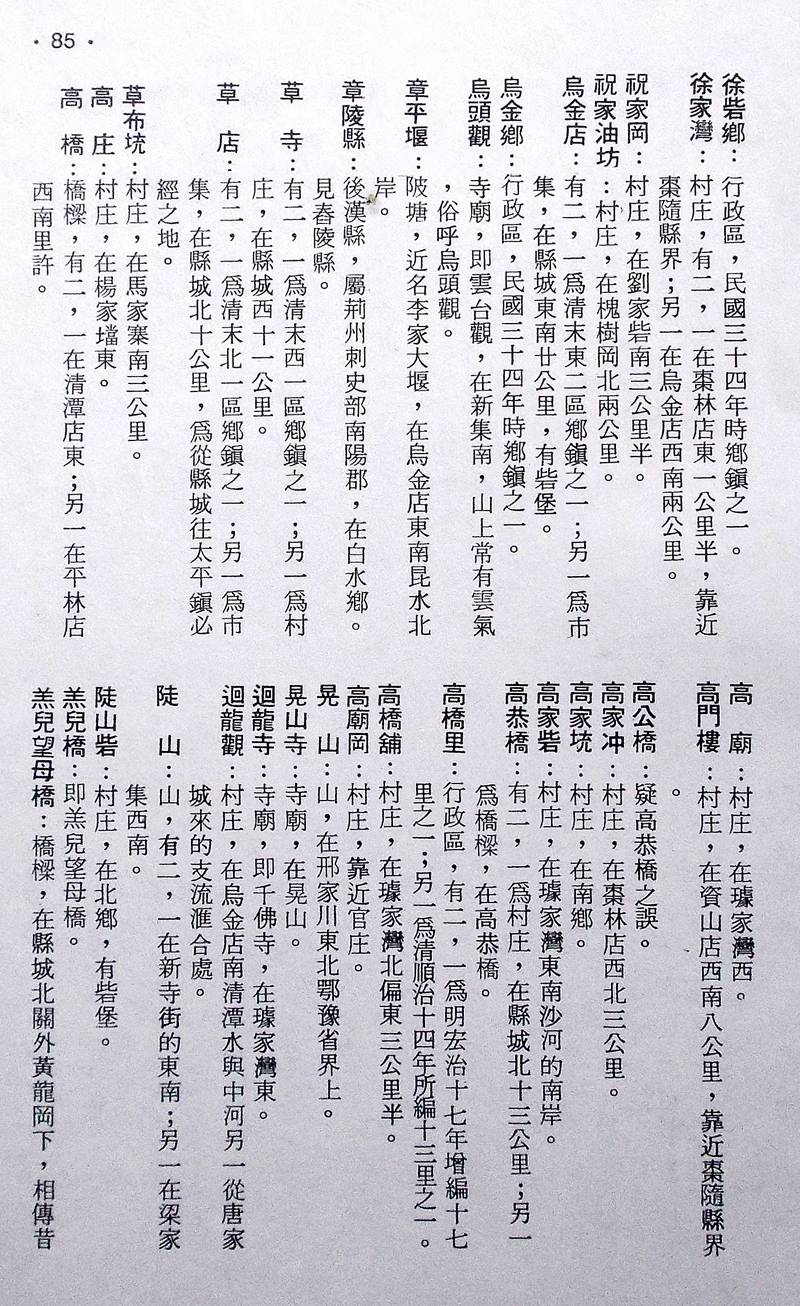 • 85 •
徐砦鄉：行政區，民國三十四年時鄉鎮之一。
徐家灣：村庄，有二，一在棗林店東一公里半，靠近
棗隨縣界；另一在烏金店西南兩公里。
祝家岡：村庄，在劉家砦南三公里半。
祝家油坊：村庄，在槐樹岡北兩公里。
烏金店：有二，一爲清末東二區鄉鎮之一；另一爲市
集，在縣城東南廿公里，有砦堡。
烏金鄉：行政區，民國三十四年時鄉鎮之一。
烏頭觀：寺廟，即雲台觀，在新集南，山上常有雲氣
，俗呼烏頭觀。
章平堰：陂塘，近名李家大堰，在烏金店東南昆水北
岸。
章陵縣：後漢縣，屬荊州刺史部南陽郡，在白水鄉。
見舂陵縣。
草　寺：有二，一爲清末西一區鄉鎮之一；另一爲村
庄，在縣城西十一公里。
草　店：有二，一爲清末北一區鄉鎮之一；另一爲市
集，在縣城北十公里，爲從縣城往太平鎮必
經之地。
草布垸：村庄，在馬家寨南三公里。
高　庄：村庄，在楊家壋東。
高　橋：橋樑，有二，一在清潭店東；另一在平林店
西南里許。
高　廟：村庄，在璩家灣西。
高門樓：村庄，在資山店西南八公里，靠近棗隨縣界
。
高公橋：疑高恭橋之誤。
高家冲：村庄，在棗林店西北三公里。
高家垸：村庄，在南鄉。
高家砦：村庄，在璩家灣東南沙河的南岸。
高恭橋：有二，一爲村庄，在縣城北十三公里；另一
爲橋樑，在高恭橋。
高橋里：行政區，有二，一爲明宏治十七年增編十七
里之一；另一爲清順治十四年所編十三里之一。
高橋舖：村庄，在璩家灣北偏東三公里半。
高廟岡：村庄，靠近官庄。
晃　山：山，在邢家川東北鄂豫省界上。
晃山寺：寺廟，在晃山。
迴龍寺：寺廟，即千佛寺，在璩家灣東。
迴龍觀：村庄，在烏金店南清潭水與中河另一從唐家
城來的支流滙合處。
陡　山：山，有二，一在新寺街的東南；另一在梁家
集西南。
陡山砦：村庄，在北鄉，有砦堡。
羔兒橋：即羔兒望母橋。
羔兒望母橋：橋樑，在縣城北關外黃龍岡下，相傳昔